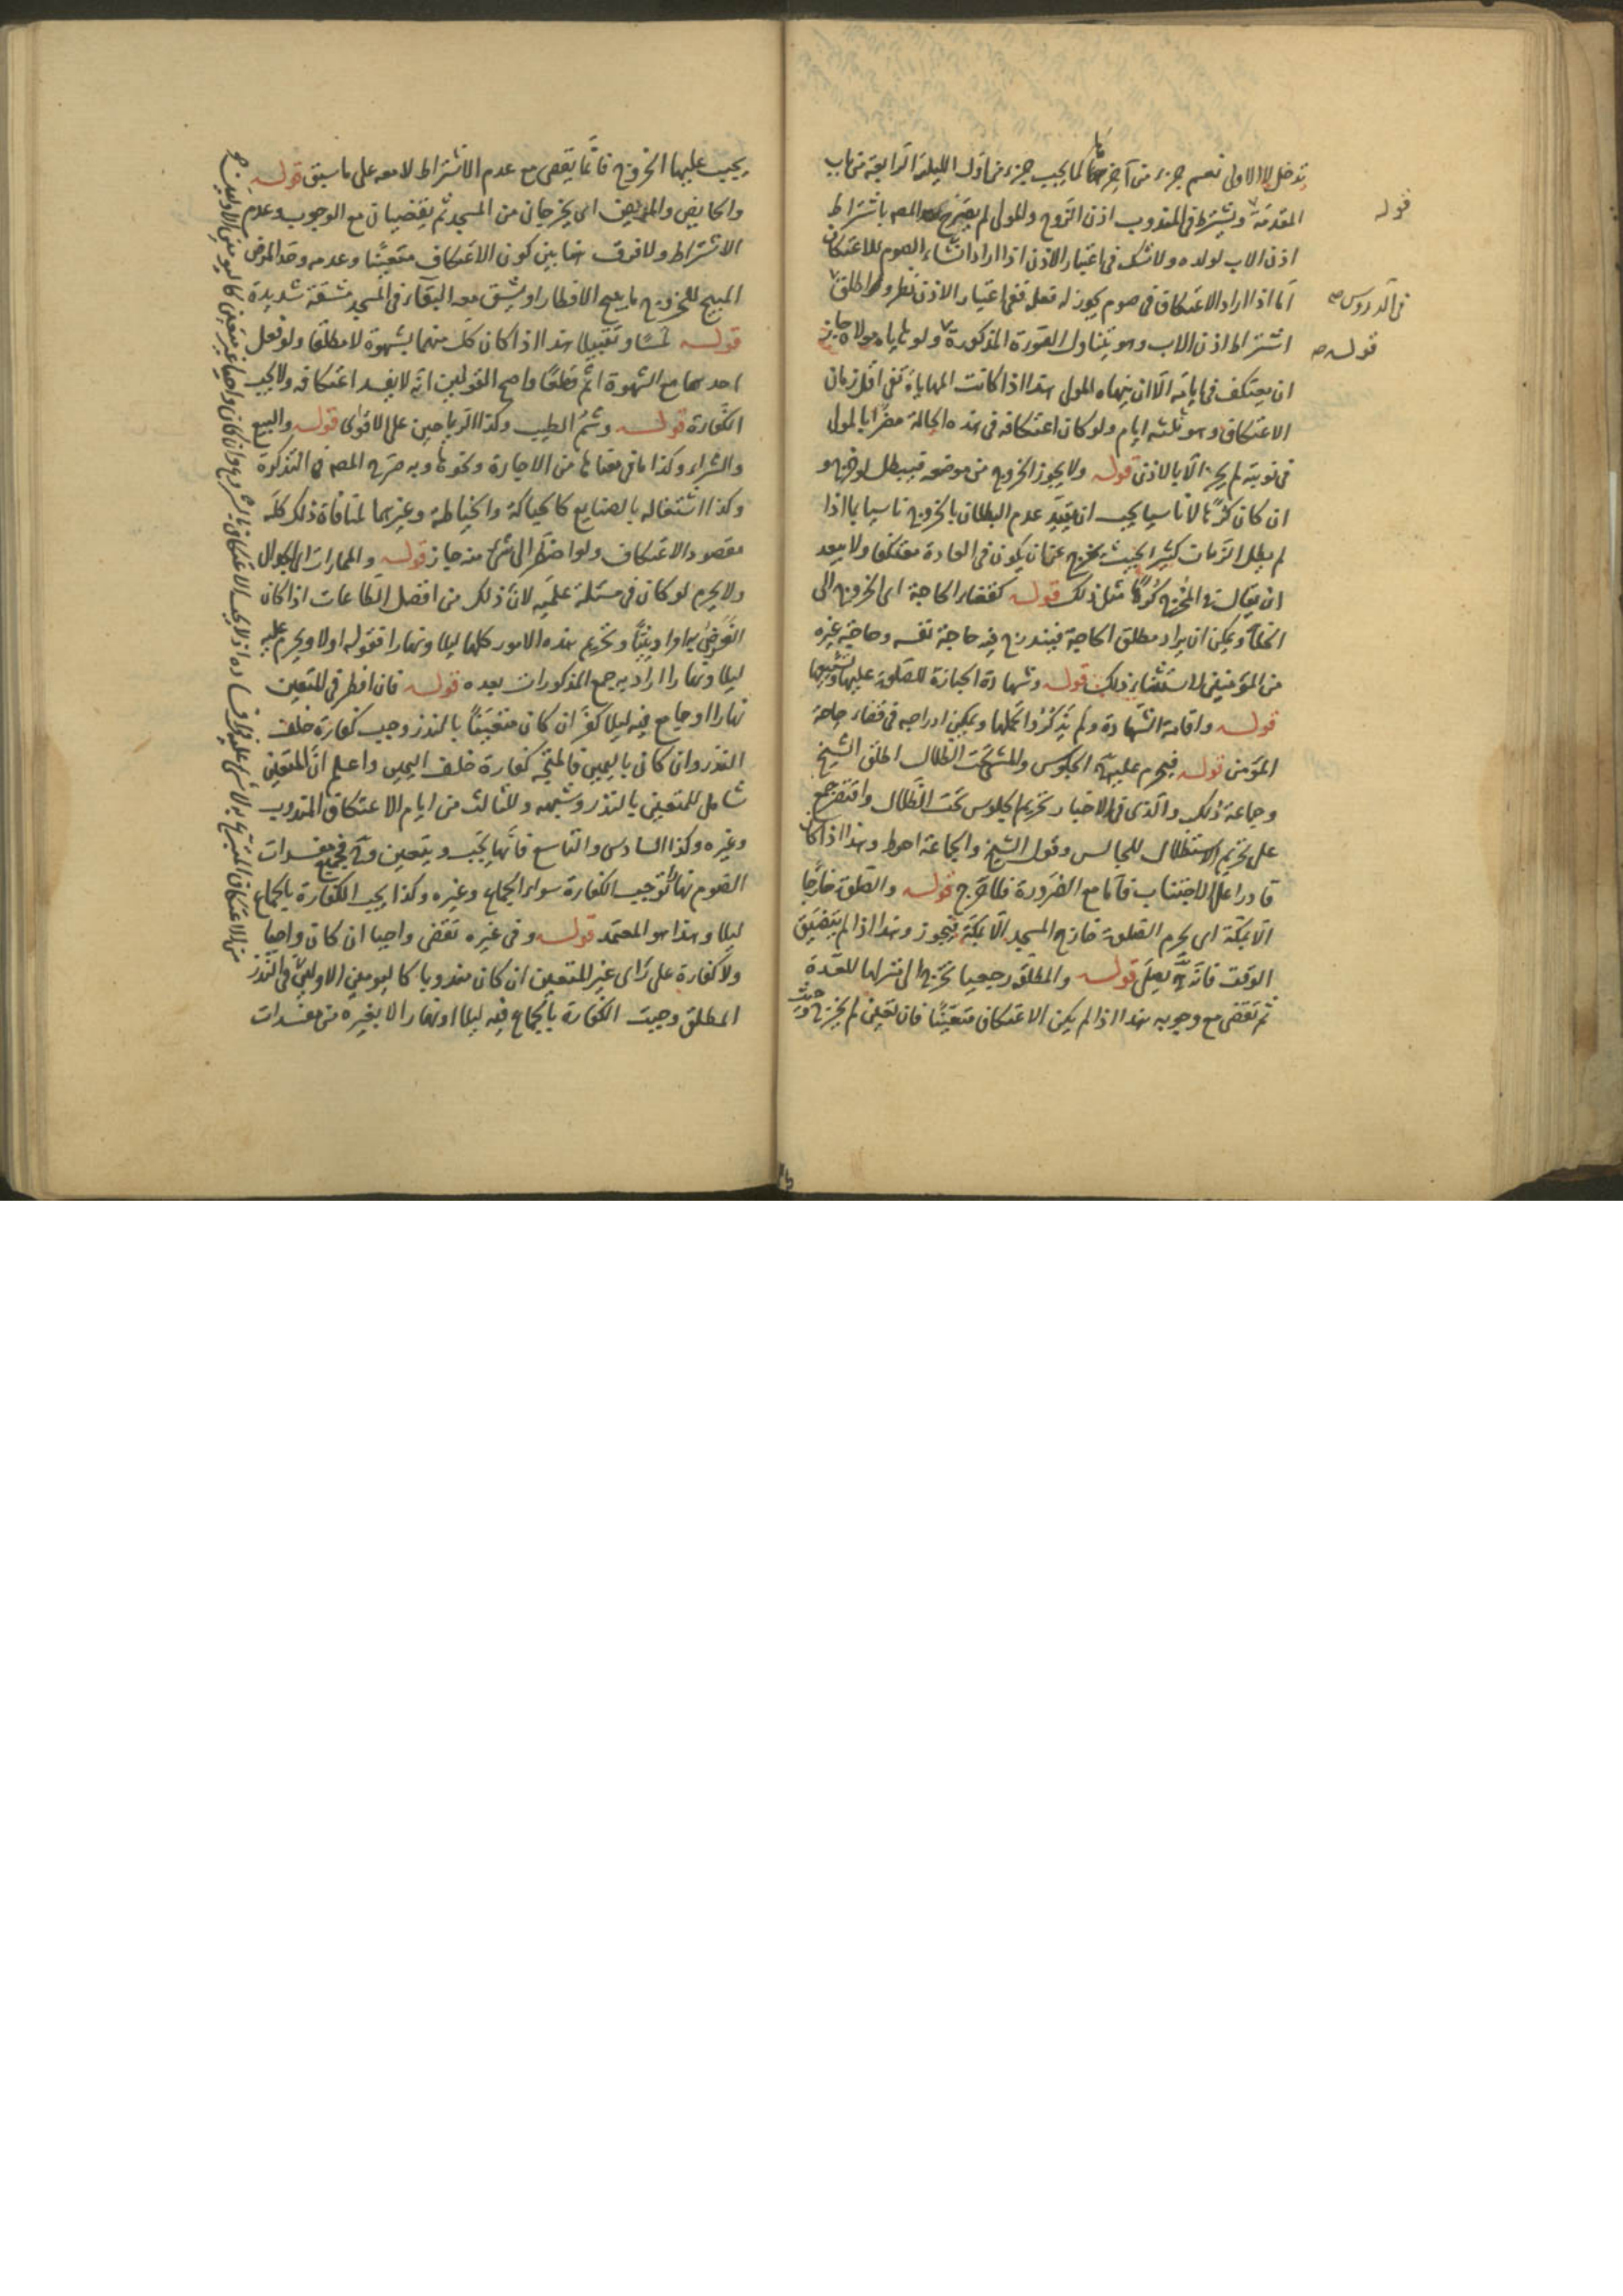 تدخل الاولى نعم جزء من آخرها كما يجب جزء من اول الليلة الرابعة من باب
المقدمة ويشترط في المندوب اذن الزوج والمولى لم يصرح المصـ باشتراط
اذن الاب لولده ولا شك في اعتبار الاذن اذا اراد انشاء الصوم للاعتكاف
اما اذا اراد الاعتكاف في صوم يجوز له فعله ففي اعتبار الاذن نظر واطلق
اشتراط اذن الاب وهو يتناول الصورة المذكورة ولو هاياه مولاه جاز
ان يعتكف في ايامه الا ان ينهاه المولى هذا اذا كانت المهاياة تفي اقل زمان
الاعتكاف وهو ثلثه ايام ولو كان اعتكافه في هذه الحالة مضرا بالمولى
في نوبته لم يجز الا بالاذن قوله ولا يجوز الخروج من موضعه فيبطل لو خرج و
ان كان كرها لا ناسيا يجب ان يقيد عدم البطلان بالخروج ناسيا بما اذا
لم يطل الزمان كثيرا بحيث يخرج عن ان يكون في العادة معتكفا ولا يبعد
ان يقال في المخرج كرها مثل ذلك قوله كقضاء الحاجة اى الخروج الى
الخلاء ويمكن ان يراد مطلق الحاجة فيندرج فيه حاجة نفسه وحاجة غيره
من المؤمنين لاستثناء ذلك قوله وشهادة الجنازة للصلوة عليها وتشييعها
قوله واقامة الشهادة ولم يذكروا تحملها ويمكن ادراجه في قضاء حاجة
المؤمن قوله فيحرم عليه الجلوس والمشي تحت الظلال اطلق الشيخ
وجماعة ذلك والذى في الاخبار تحريم الجلوس تحت الظلال واقتصر جمع
على تحريم الاستظلال للجالس وقول الشيخ والجماعة احوط وهذا اذا كان
قادرا على الاجتناب فاما مع الضرورة فلا حرج قوله والصلوة خارجا
الا بمكة اى يحرم الصلوة خارج المسجد الا بمكة فيجوز وهذا اذا لم يتضيق
الوقت فانه يصلى قوله والمطلقة رجعيا تخرج الى منزلها للعدة
ثم تقضى مع وجوبه هذا اذا لم يكن الاعتكاف متعينا فان تعين لم يخرج وحيث
قوله
في الدروس صح
قوله صح
يجب عليها الخروج فانما يقضى مع عدم الاشتراط لا معه على ما سبق قوله
والحايض والمريض اى يخرجان من المسجد ثم يقضيان مع الوجوب وعدم
الاشتراط ولا فرق هنا بين كون الاعتكاف متعينا وعدمه وحد المرض
المبيح للخروج ما يبيح الافطار او يشق معه البقاء في المسجد مشقة شديدة
قوله لمسا وتقبيلا هذا اذا كان كل منهما بشهوة لا مطلقا ولو فعل
احدهما مع الشهوة اثم قطعا واصح القولين انه لا يفسد اعتكافه ولا يجب
الكفارة قوله وشم الطيب وكذا الرياحين على الاقوى قوله والبيع
والشراء وكذا ما في معناها من الاجارة ونحوها وبه صرح المصـ في التذكرة
وكذا اشتغاله بالصنايع كالحياكة والخياطة وغيرهما لمنافاة ذلك كله
مقصود الاعتكاف ولو اضطر الى شئ منه جاز قوله والممارات اى الجدال
ولا يحرم لو كان في مسئلة علمية لان ذلك من افضل الطاعات اذا كان
الغرض وتحريم هذه الامور كلها ليلا ونهارا فقوله اولا ويحرم عليه
ليلا ونهارا اراد به جمع المذكورات بعده قوله فان افطر في المتعين
نهارا او جامع فيه ليلا كفر ان كان متعينا بالنذر وجب كفارة خلف
النذر وان كان باليمين فالمتجه كفارة خلف اليمين واعلم ان المتعين
شامل للمتعين بالنذر وشبهه وللثالث من ايام الاعتكاف المندوب
وغيره وكذا السادس والتاسع فانها يجب ويتعين وفي جميع مفسدات
الصوم نهارا توجب الكفارة سواء الجماع وغيره وكذا يجب الكفارة بالجماع
ليلا وهذا هو المعتمد قوله وفي غيره تقضى واجبا ان كان واجبا
ولا كفارة على راى غير المتعين ان كان مندوبا كاليومين الاولين في النذر
المطلق وجبت الكفارة بالجماع فيه ليلا او نهارا لا بغيره من مفسدات